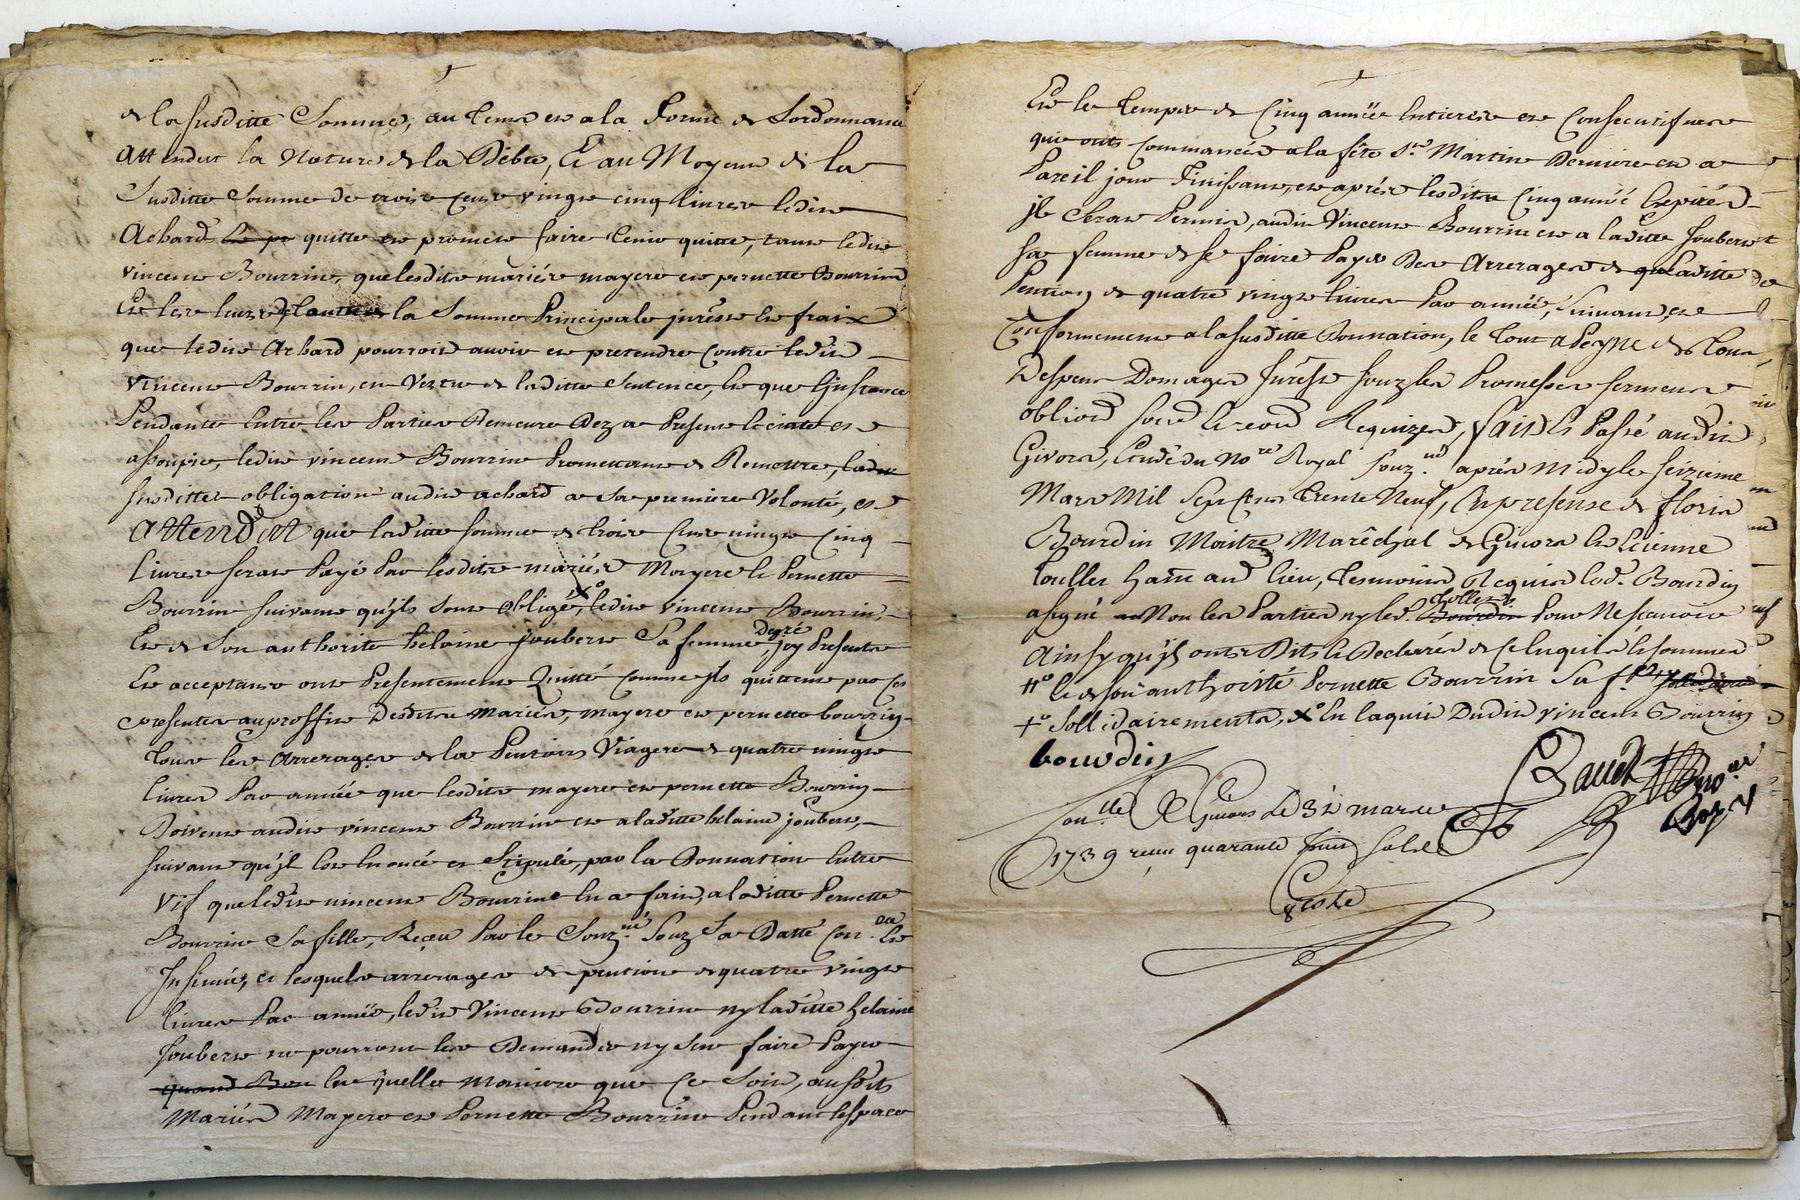 de la susditte Somme, au terme et a la forme de Lordonnance
Attendut la Nature de la Debte, Et au Moyent de la
Susditte Somme de trois cent vingt cinq livres ledit
Achard quitte et promet faire tenir quitte, tant ledit
vincent Bourrin, que lesdits mariés mayere et pernette Bourrin
Et les leurs de la Somme Principale jnterest Et fraix
que ledit Achard pourroit avoir et pretendre contre ledit
vincent Bourrin, en Vertu de laditte Sentence, Et que Ginstance
Pendante Entre les Parties Demeure Dez a Present Eteinte et
assoupie, ledit vincent Bourrin Promettant de Remettre, laditte
susditte obligation audit achard a sa premiere Volonté, et
Attendut que laditte somme de trois Cent vingt cinq
Livres seras Payé Par lesdits mariés Mayere Et Pernette
Bourrin suivant qu'jls sont obligé, xo ledit vincent Bourrin,
Et de Son authorité helaine joubert Sa femme degré jcy Presente
Et acceptant ont Presentement Quitté comme jls quittent par Ces
presentes au proffit Desdits Mariés, mayere et pernette bourrin
Tous les Arrerages de la Pention Viagere de quatre vingt
livres Par année que lesdits mayere et pernette Bourrin
Doivent audit vincent Bourrin et a laditte helaine joubert,
suivant qu'jl est Enoncé et Stipulé, par la Donnation Entre
Vif que ledit vincent Bourrin En a fait, a laditte Pernette
Bourrin Sa fille, Reçeu Par le Souz.né Souz Sa Datte Con.lée Et
Insinuée, et lesquels arrerages de pention de quatre vingt
livres Par année, ledit Vincent Bourrin ny laditte helaine
Joubert ne pourront les Demander ny s'en faire Payer
quand Bon En quelle Maniere que Ce Soit, ausdits
Mariés Mayere et Pernette Bourrin Pendant lespace
Et le temps de Cinq année Entieres et Consecutifves
qui ont Commancés a la fête St Martin Derniere et a
Pareil jour Finissant, et aprés lesdits Cinq année Expirés
jl Seras Permis, audit Vincent Bourrin et a laditte Joubert
sa femme de se faire Payer Des Arrerages de laditte
Pention de quatre vingt livres Par année, suivant et
Conformement a la susditte Donnation, le Tout a Peyne de tous
Despens Domages Jnterest souz les Promesses serments
obliond soud Et reond Requizes, fait Et Passé audit
Givors, Etude du Nore Royal souz.né aprés Midy le seizieme
Mars Mil Sept Cent Trente Neuf, En presense de floris
Bourdin Maitre Maréchal de Givors Et Etienne
Touller Habt aud lieu, Temoins Requis led. Bourdin
a signé Non les Parties ny led. Touller Pour Ne sçavoir
Ainsy qu'jls ont Dits Et Declarés de Ce Enquis Et sommés
#o Et de son authorité Pernette Bourrin Sa fe
+o Sollidairements, xo En laquit Dudit vincent Bourrin
bourdin
Conlle A Givors Le 31 mars
1739 reçu quarante huit sols
Coste